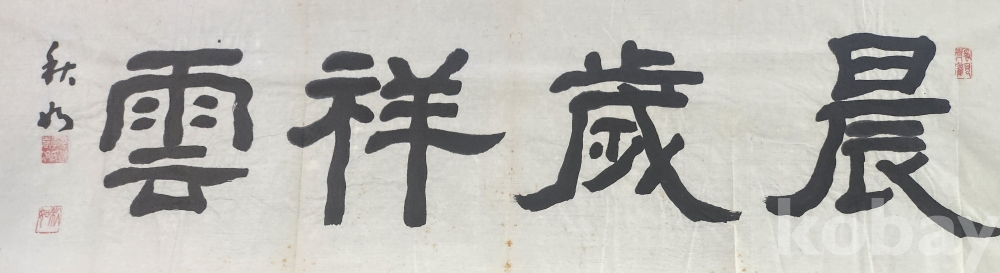 晨歲祥雲
秋如
kobay